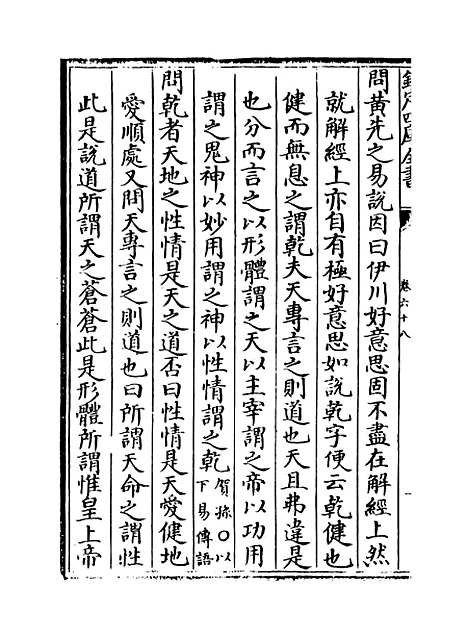 欽定四庫全書
卷六十八
問黄先之易說因曰伊川好意思固不盡在解經上然
就解經上亦自有極好意思如說乾字便云乾健也
健而無息之謂乾夫天專言之則道也天且弗違是
也分而言之以形體謂之天以主宰謂之帝以功用
謂之鬼神以妙用謂之神以性情謂之乾賀孫〇以下易傳語
問乾者天地之性情是天之道否曰性情是天愛健地
愛順處又問天專言之則道也曰所謂天命之謂性
此是說道所謂天之蒼蒼此是形體所謂惟皇上帝